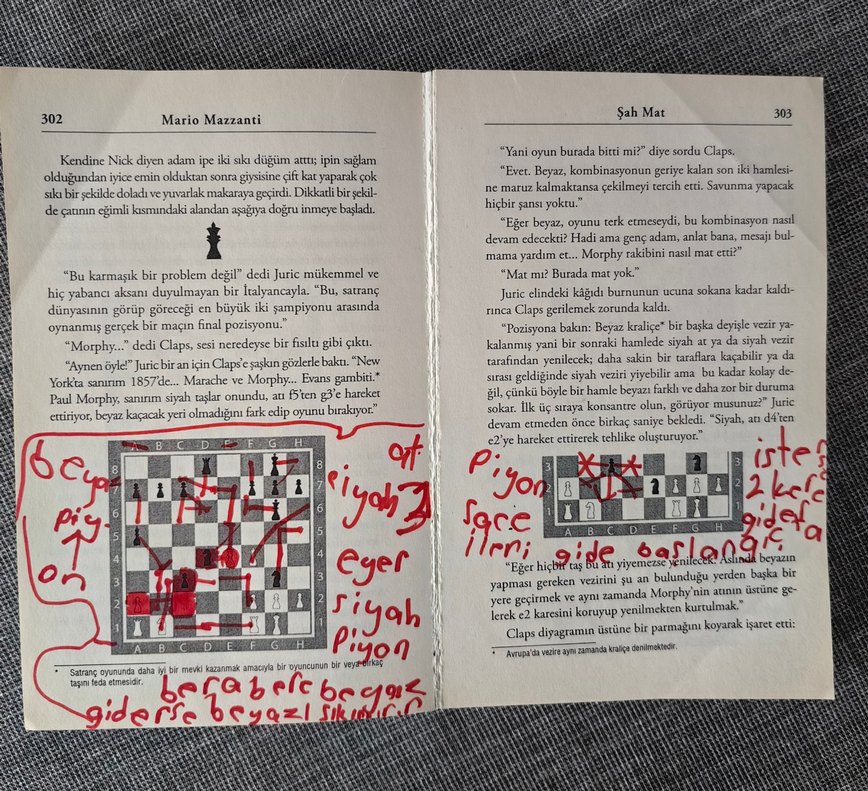 302
Mario Mazzanti
Kendine Nick diyen adam ipe iki sıkı düğüm atttı; ipin sağlam
olduğundan iyice emin olduktan sonra giysisine çift kat yaparak çok
sıkı bir şekilde doladı ve yuvarlak makaraya geçirdi. Dikkatli bir şekil-
de çatının eğimli kısmındaki alandan aşağıya doğru inmeye başladı.
"Bu karmaşık bir problem değil" dedi Juric mükemmel ve
hiç yabancı aksanı duyulmayan bir İtalyancayla. "Bu, satranç
dünyasının görüp göreceği en büyük iki şampiyonu arasında
oynanmış gerçek bir maçın final pozisyonu."
"Morphy..." dedi Claps, sesi neredeyse bir fısıltı gibi çıktı.
"Aynen öyle!" Juric bir an için Claps'e şaşkın gözlerle baktı. "New
York'ta sanırım 1857'de... Marache ve Morphy... Evans gambiti.*
Paul Morphy, sanırım siyah taşlar onundu, atı f5'ten g3'e hareket
ettiriyor, beyaz kaçacak yeri olmadığını fark edip oyunu bırakıyor."
A B C D E F G H
8 8
7 7
6 6
5 5
4 4
3 3
2 2
1 1
A B C D E F G H
beyaz
piy.
on
at
siyah 3
eyer
siyah
piyon
* Satranç oyununda daha iyi bir mevki kazanmak amacıyla bir oyuncunun bir veya birkaç
taşını feda etmesidir.
berabere beyaz
giderse beyazı
Şah Mat
303
"Yani oyun burada bitti mi?" diye sordu Claps.
"Evet. Beyaz, kombinasyonun geriye kalan son iki hamlesi-
ne maruz kalmaktansa çekilmeyi tercih etti. Savunma yapacak
hiçbir şansı yoktu."
"Eğer beyaz, oyunu terk etmeseydi, bu kombinasyon nasıl
devam edecekti? Hadi ama genç adam, anlat bana, mesajı bul-
mama yardım et... Morphy rakibini nasıl mat etti?"
"Mat mı? Burada mat yok."
Juric elindeki kâğıdı burnunun ucuna sokana kadar kaldı-
rınca Claps gerilemek zorunda kaldı.
"Pozisyona bakın: Beyaz kraliçe* bir başka deyişle vezir ya-
kalanmış yani bir sonraki hamlede siyah at ya da siyah vezir
tarafından yenilecek; daha sakin bir taraflara kaçabilir ya da
sırası geldiğinde siyah veziri yiyebilir ama bu kadar kolay de-
ğil, çünkü böyle bir hamle beyazı farklı ve daha zor bir duruma
sokar. İlk üç sıraya konsantre olun, görüyor musunuz?" Juric
devam etmeden önce birkaç saniye bekledi. "Siyah, atı d4'ten
e2'ye hareket ettirerek tehlike oluşturuyor."
3 3
2 2
1 1
A B C D E F G H
piyon
ileri gide başlangıç
2 kere
"Eğer hiçbir taş bu atı yiyemezse yenilecek. Aslında beyazın
yapması gereken vezirini şu an bulunduğu yerden başka bir
yere geçirmek ve aynı zamanda Morphy'nin atının üstüne ge-
lerek e2 karesini koruyup yenilmekten kurtulmak."
Claps diyagramın üstüne bir parmağını koyarak işaret etti:
* Avrupa'da vezire aynı zamanda kraliçe denilmektedir.